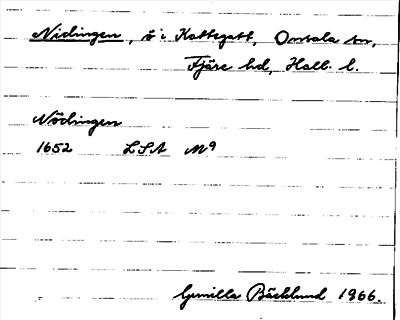 Nidingen, ö i Kattegatt, Onsala sn,
Fjäre hd, Hall. l.
Nödingen
1652 LSA M9
Gunilla Bäcklund 1966.